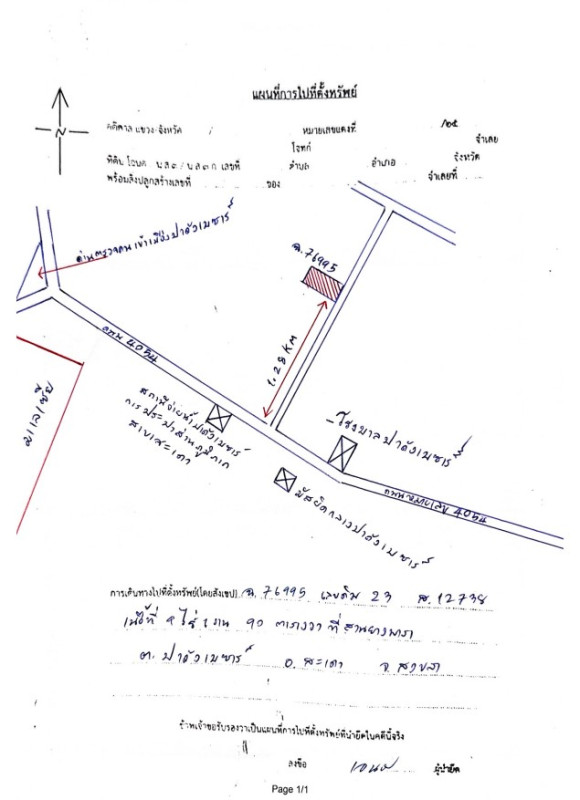 แผนที่การไปที่ตั้งทรัพย์
คดีศาล แขวง-จังหวัด / หมายเลขแดงที่ /๒๕
โจทก์ จำเลย
ที่ดิน โฉนด น.ส.๓ / น.ส.๓ ก. เลขที่ ตำบล อำเภอ จังหวัด
พร้อมสิ่งปลูกสร้างเลขที่ ของ จำเลยที่
N
ด่านตรวจคนเข้าเมืองปาดังเบซาร์
ฉ.76995
1.28 KM
ถนน 4054
มาเลเซีย
สถานีจ่ายน้ำปาดังเบซาร์
การประปาส่วนภูมิภาค
สาขาสะเดา
โรงบาลปาดังเบซาร์
มัสยิดกลางปาดังเบซาร์
ถนนหมายเลข 4054
การเดินทางไปที่ตั้งทรัพย์(โดยสังเขป) ฉ.76995 เลขดิน 23 ส.12738
เนื้อที่ ไร่ 1 งาน 90 ตารางวา ที่สวนยางพารา
ต. ปาดังเบซาร์ อ. สะเดา จ. สงขลา
ข้าพเจ้าขอรับรองว่าเป็นแผนที่การไปที่ตั้งทรัพย์ที่นำยึดในคดีนี้จริง
ลงชื่อ ผู้นำยึด
Page 1/1